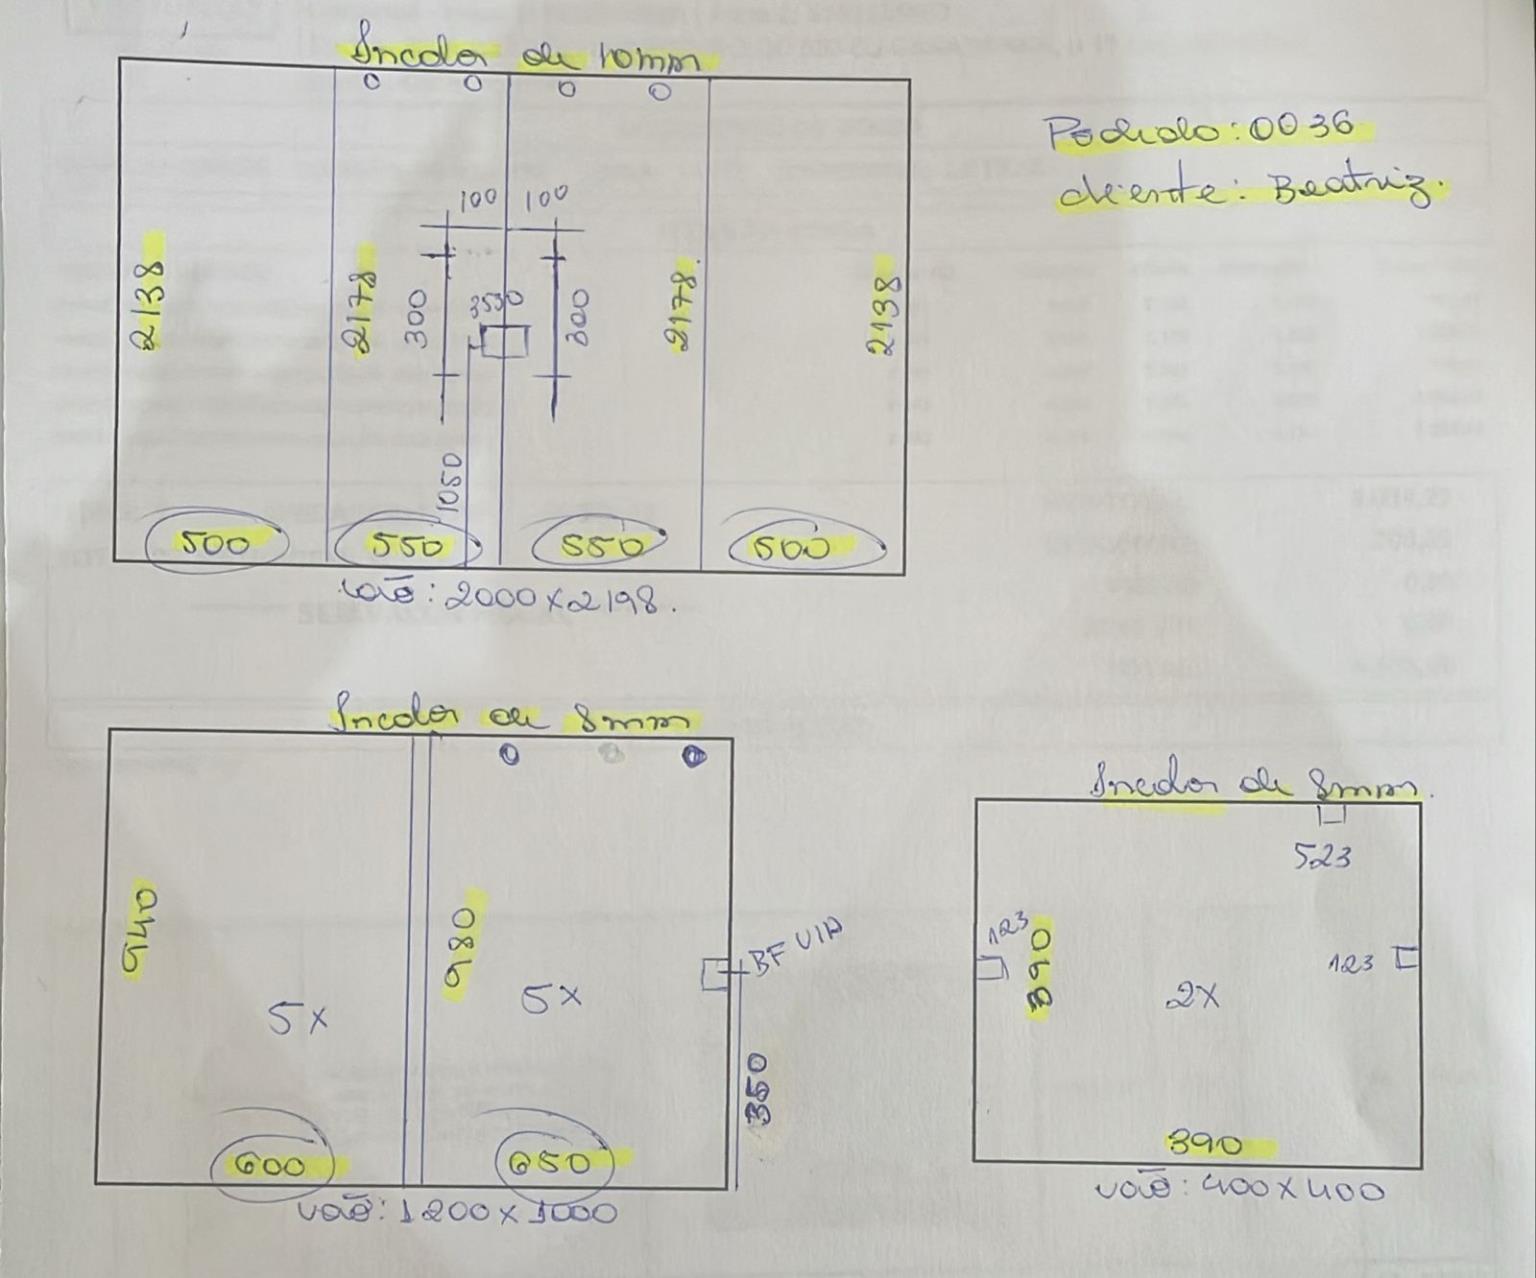 Incolor de 10mm
Pedido: 0036
cliente: Beatriz.
100 100
2138
2178
300
3530
300
2178
2138
1050
500
550
550
500
vão: 2000x2198.
Incolor de 8mm
940
980
5x
5x
BF VIA
350
600
650
vão: 1200x1000
Incolor de 8mm.
523
123
390
123
2x
390
vão: 400x400